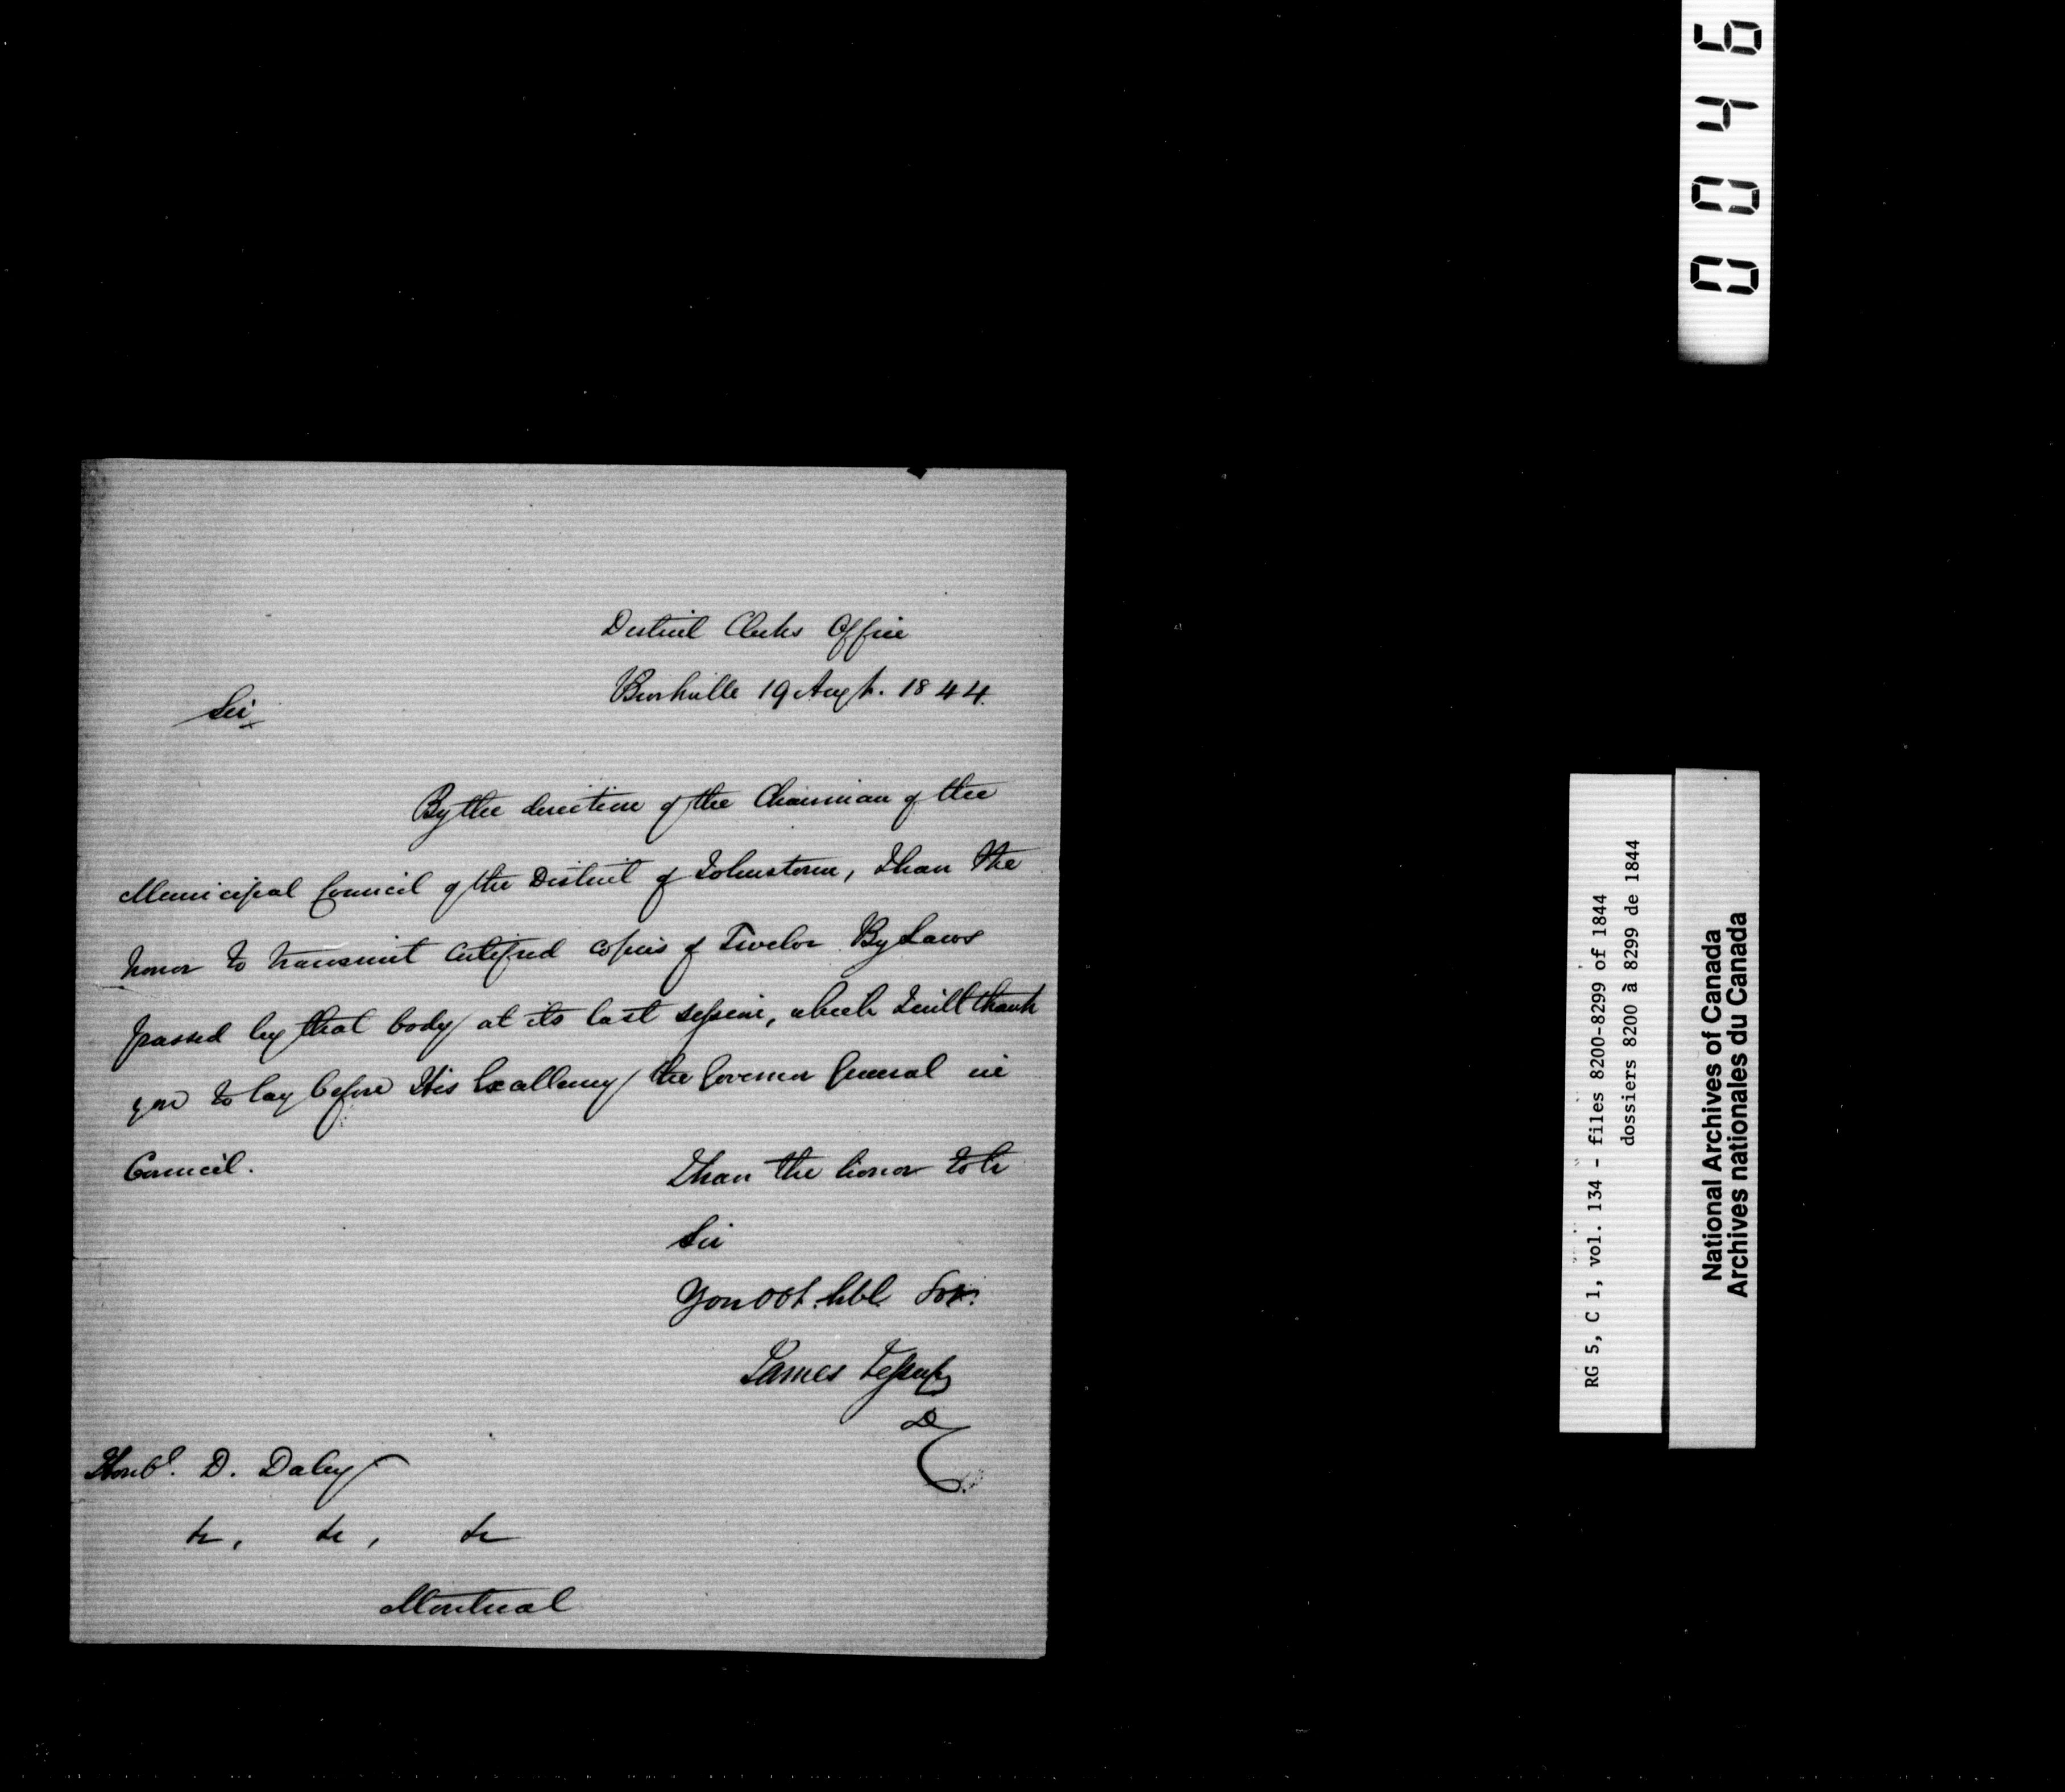 District Clerks Office
Brockville 19 Augt. 1844.
Sir
By the direction of the Chairman of the
Municipal Council of the District of Johnstown, I have the
honor to transmit certified copies of Twelve By Laws
passed by that body at its last session, which I will thank
you to lay before His Excellency the Governor General in
Council.
I have the honor to be
Sir
Your Obt. hbl. Svt.
James Jessup
D
Honbl. D. Daly
&c, &c, &c
Montreal
0046
RG 5, C 1, vol. 134 - files 8200-8299 of 1844
dossiers 8200 à 8299 de 1844
National Archives of Canada
Archives nationales du Canada